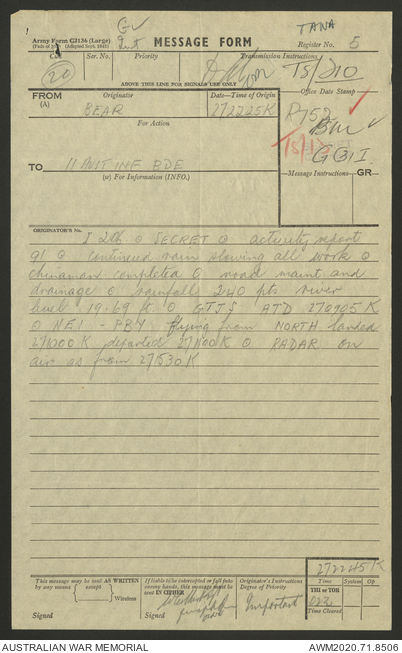 TANA
Army Form C2136 (Large)
MESSAGE FORM
Register No. 5
Call
Ser. No.
Priority
Transmission Instructions
(20)
TS/210
ABOVE THIS LINE FOR SIGNALS USE ONLY
FROM
(A)
Originator
Date—Time of Origin
Office Date Stamp
BEAR
272225K
For Action
TO 11 AUST INF BDE
(W) For Information (INFO.)
GSI I.
Message Instructions
GR
ORIGINATOR'S No.
I 286 O SECRET O activity report
91 O continued rain slowing all work O
chinaman completed O road maint and
drainage O rainfall 240 pts river
level 19.69 ft. O GTJS ATD 270905K
O NEI - PBY flying from NORTH landed
271000K departed 271100K O RADAR on
air as from 271530K
272245K
This message may be sent AS WRITTEN
by any means except Wireless
If liable to be intercepted or fall into
enemy hands, this message must be
sent IN CIPHER
Originator's Instructions
Degree of Priority
Time
System
Op
THI or TOR
Important
Time Cleared
Signed
Signed
AUSTRALIAN WAR MEMORIAL
AWM2020.71.8506